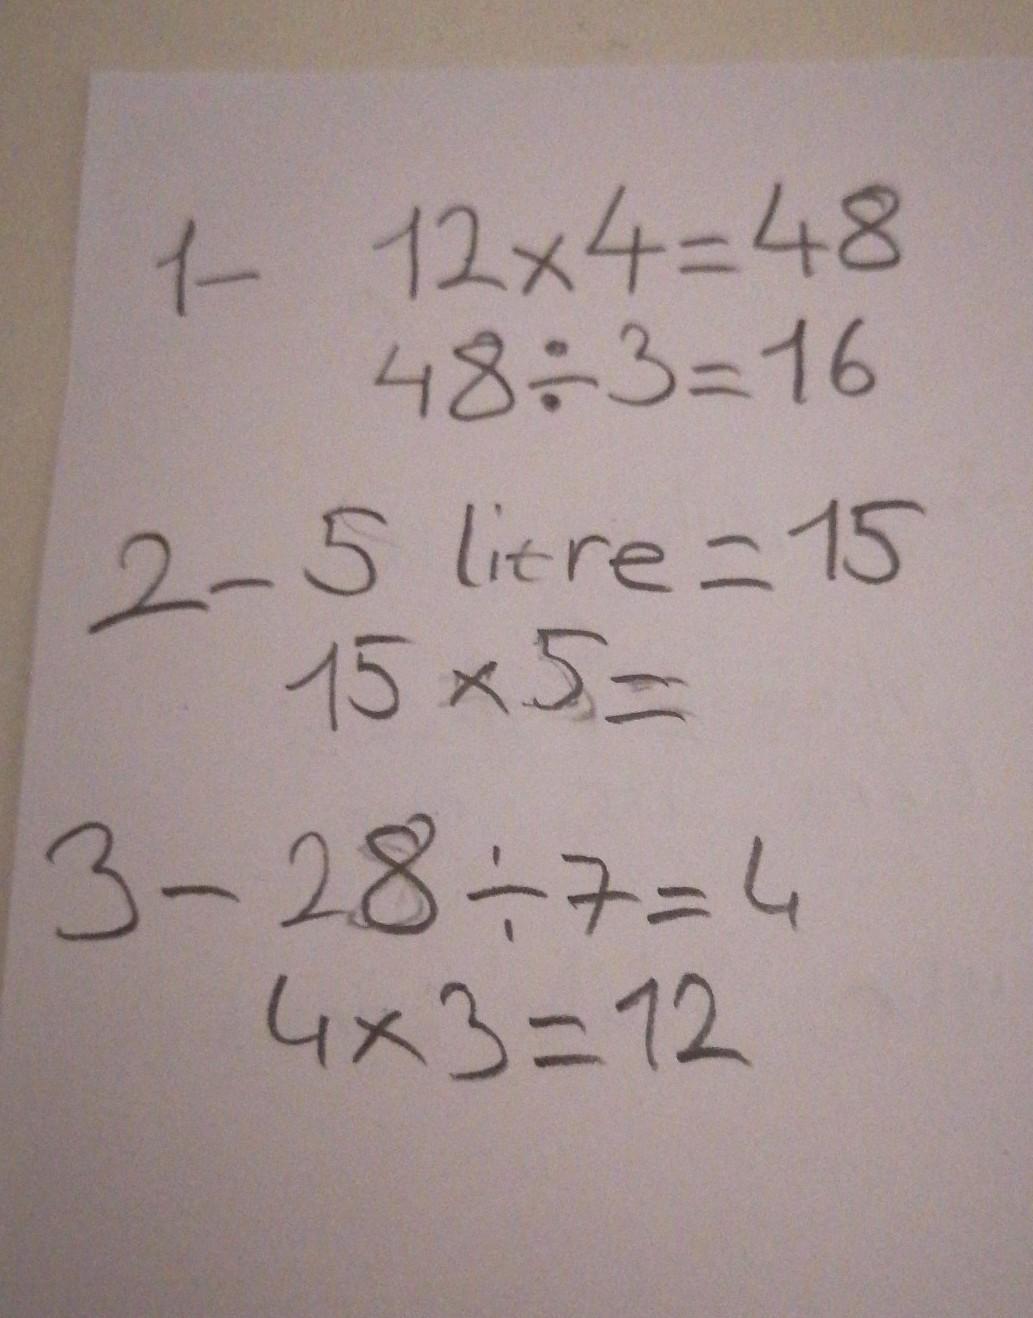 1- 12x4=48
48÷3=16
2- 5 litre=15
15x5=
3- 28÷7=4
4x3=12